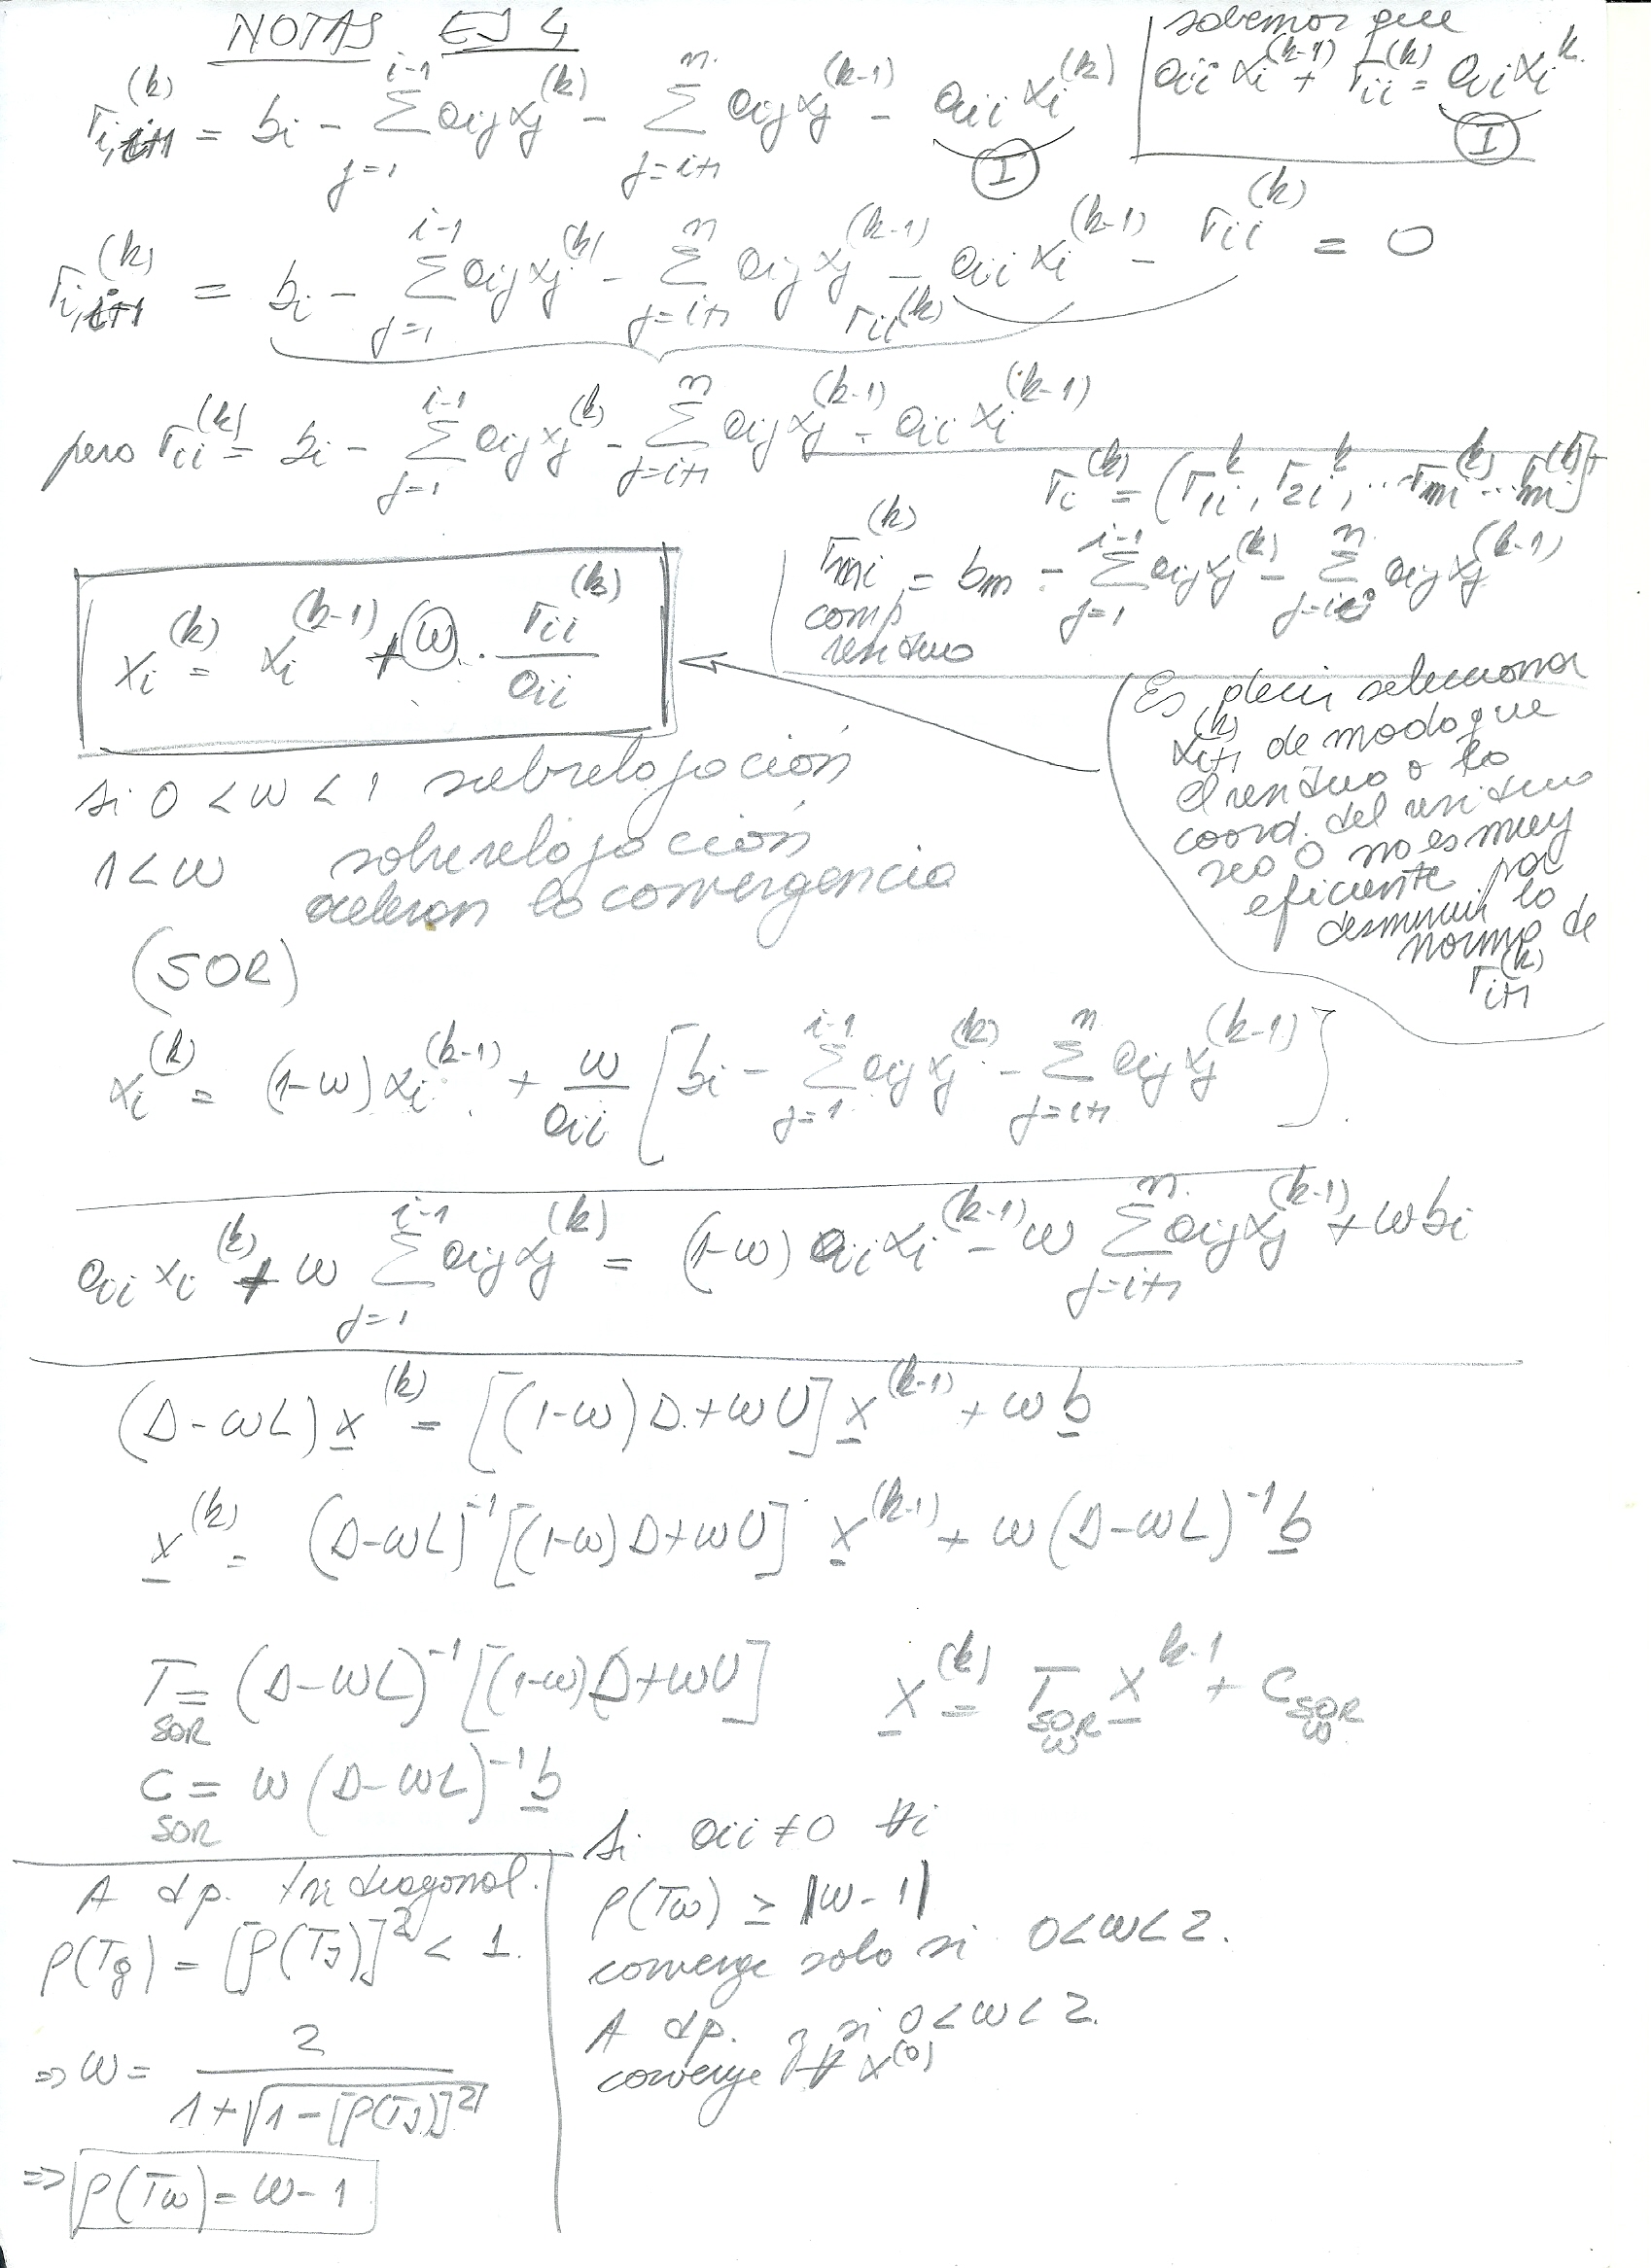 NOTAS EJ 4
sabemos que
aii xi^(k-1) + rii^(k) = aii xi^k
(I)
ri,i+1^(k) = bi - Σ_{j=1}^{i-1} aij xj^(k) - Σ_{j=i+1}^{n} aij xj^(k-1) - aii xi^(k)
(I)
ri,i+1^(k) = bi - Σ_{j=1}^{i-1} aij xj^(k) - Σ_{j=i+1}^{n} aij xj^(k-1) - aii xi^(k-1) - rii^(k) = 0
rii^(k)
pero rii^(k) = bi - Σ_{j=1}^{i-1} aij xj^(k) - Σ_{j=i+1}^{n} aij xj^(k-1) - aii xi^(k-1)
ri^(k) = (r1i^k, r2i^k, ... rmi^(k) ... rni^(k))^t
rmi^(k) = bm - Σ_{j=1}^{i-1} aij xj^(k) - Σ_{j=i}^{n} aij xj^(k-1)
comp
residuo
xi^(k) = xi^(k-1) + ω · rii^(k) / aii
Es decir seleccionar
xi+1^(k) de modo que
el residuo o la
coord. del residuo
sea 0 no es muy
eficiente por
disminuir la
norma de
ri+1^(k)
si 0 < ω < 1 subrelajación
1 < ω sobrerelajación
aceleran la convergencia
(SOR)
xi^(k) = (1-ω) xi^(k-1) + ω/aii [bi - Σ_{j=1}^{i-1} aij xj^(k) - Σ_{j=i+1}^{n} aij xj^(k-1)].
aii xi^(k) + ω Σ_{j=1}^{i-1} aij xj^(k) = (1-ω) aii xi^(k-1) - ω Σ_{j=i+1}^{n} aij xj^(k-1) + ω bi
(D-ωL) x^(k) = [(1-ω) D + ωU] x^(k-1) + ω b
x^(k) = (D-ωL)^-1 [(1-ω) D + ωU] x^(k-1) + ω (D-ωL)^-1 b
T_SOR = (D-ωL)^-1 [(1-ω) D + ωU]
x^(k) = T_SOR ω x^k-1 + C_SOR ω
C_SOR = ω (D-ωL)^-1 b
A dp. tridiagonal.
ρ(Tg) = [ρ(TJ)]^2 < 1.
⇒ ω = 2 / (1 + √(1 - [ρ(TJ)]^2))
⇒ ρ(Tω) = ω - 1
Si aii ≠ 0 ∀i
ρ(Tω) ≥ |ω - 1|
converge solo si 0 < ω < 2.
A dp. y si 0 < ω < 2.
converge ∀ x^(0)